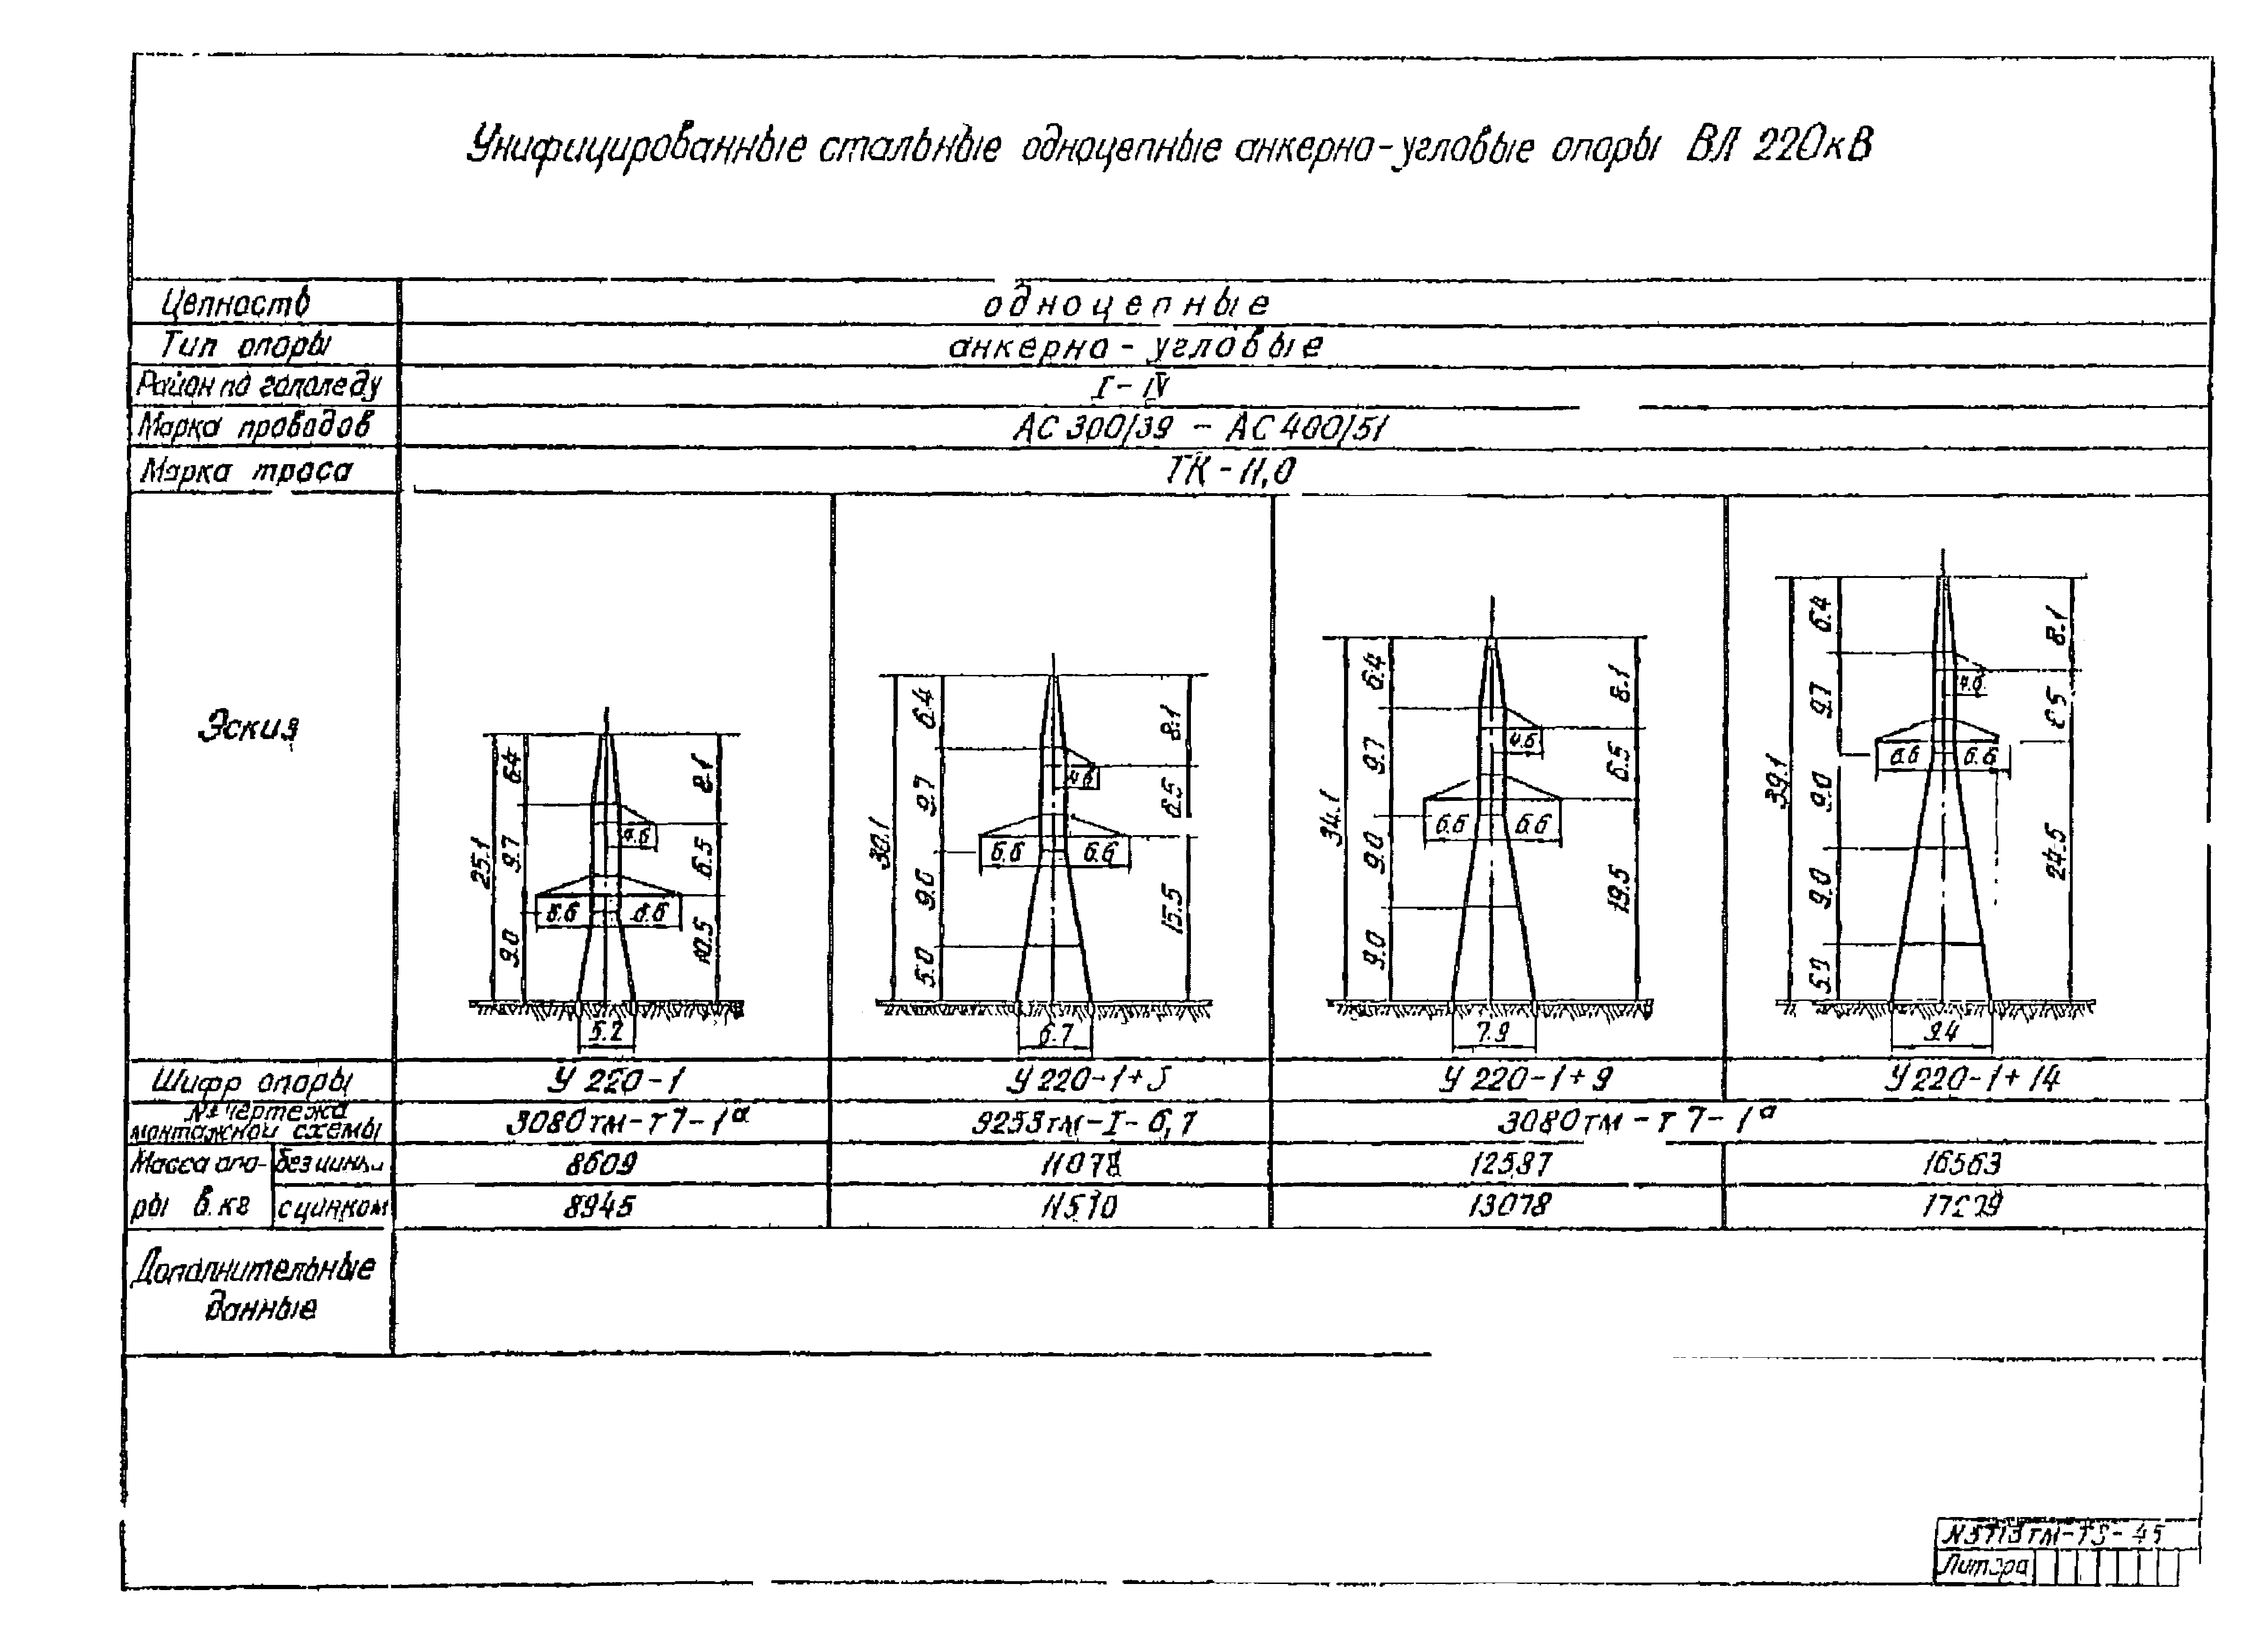 Унифицированные стальные одноцепные анкерно-угловые опоры ВЛ 220кВ
Цепность одноцепные
Тип опоры анкерно-угловые
Район по гололеду I-IV
Марка проводов АС 300/39 - АС 400/51
Марка троса ТК-11,0
Эскиз
25.1 6.4 9.7 9.0 4.6 6.6 6.6 8.1 6.5 10.5 5.2
30.1 6.4 9.7 9.0 5.0 4.6 6.6 6.6 8.1 6.5 15.5 6.7
34.1 6.4 9.7 9.0 9.0 4.6 6.6 6.6 8.1 6.5 19.5 7.9
39.1 6.4 9.7 9.0 9.0 5.0 4.6 6.6 6.6 8.1 6.5 24.5 9.4
Шифр опоры У 220-1 У 220-1+5 У 220-1+9 У 220-1+14
№ чертежа
монтажной схемы 3080тм-т7-1а 3080тм-т7-1а
Масса опо- без цинка 8609 11078 12587 16563
ры в кг с цинком 8945 11510 13078
Дополнительные
данные
Литера